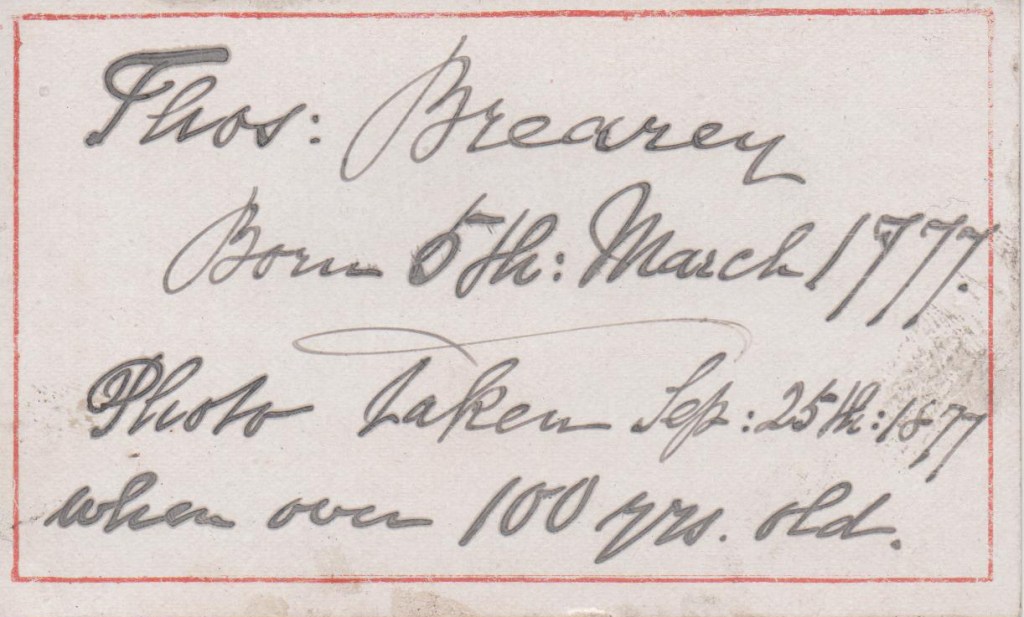 Thos: Brearey
Born 5th: March 1777.
Photo taken Sep: 25th: 1877
when over 100 yrs. old.